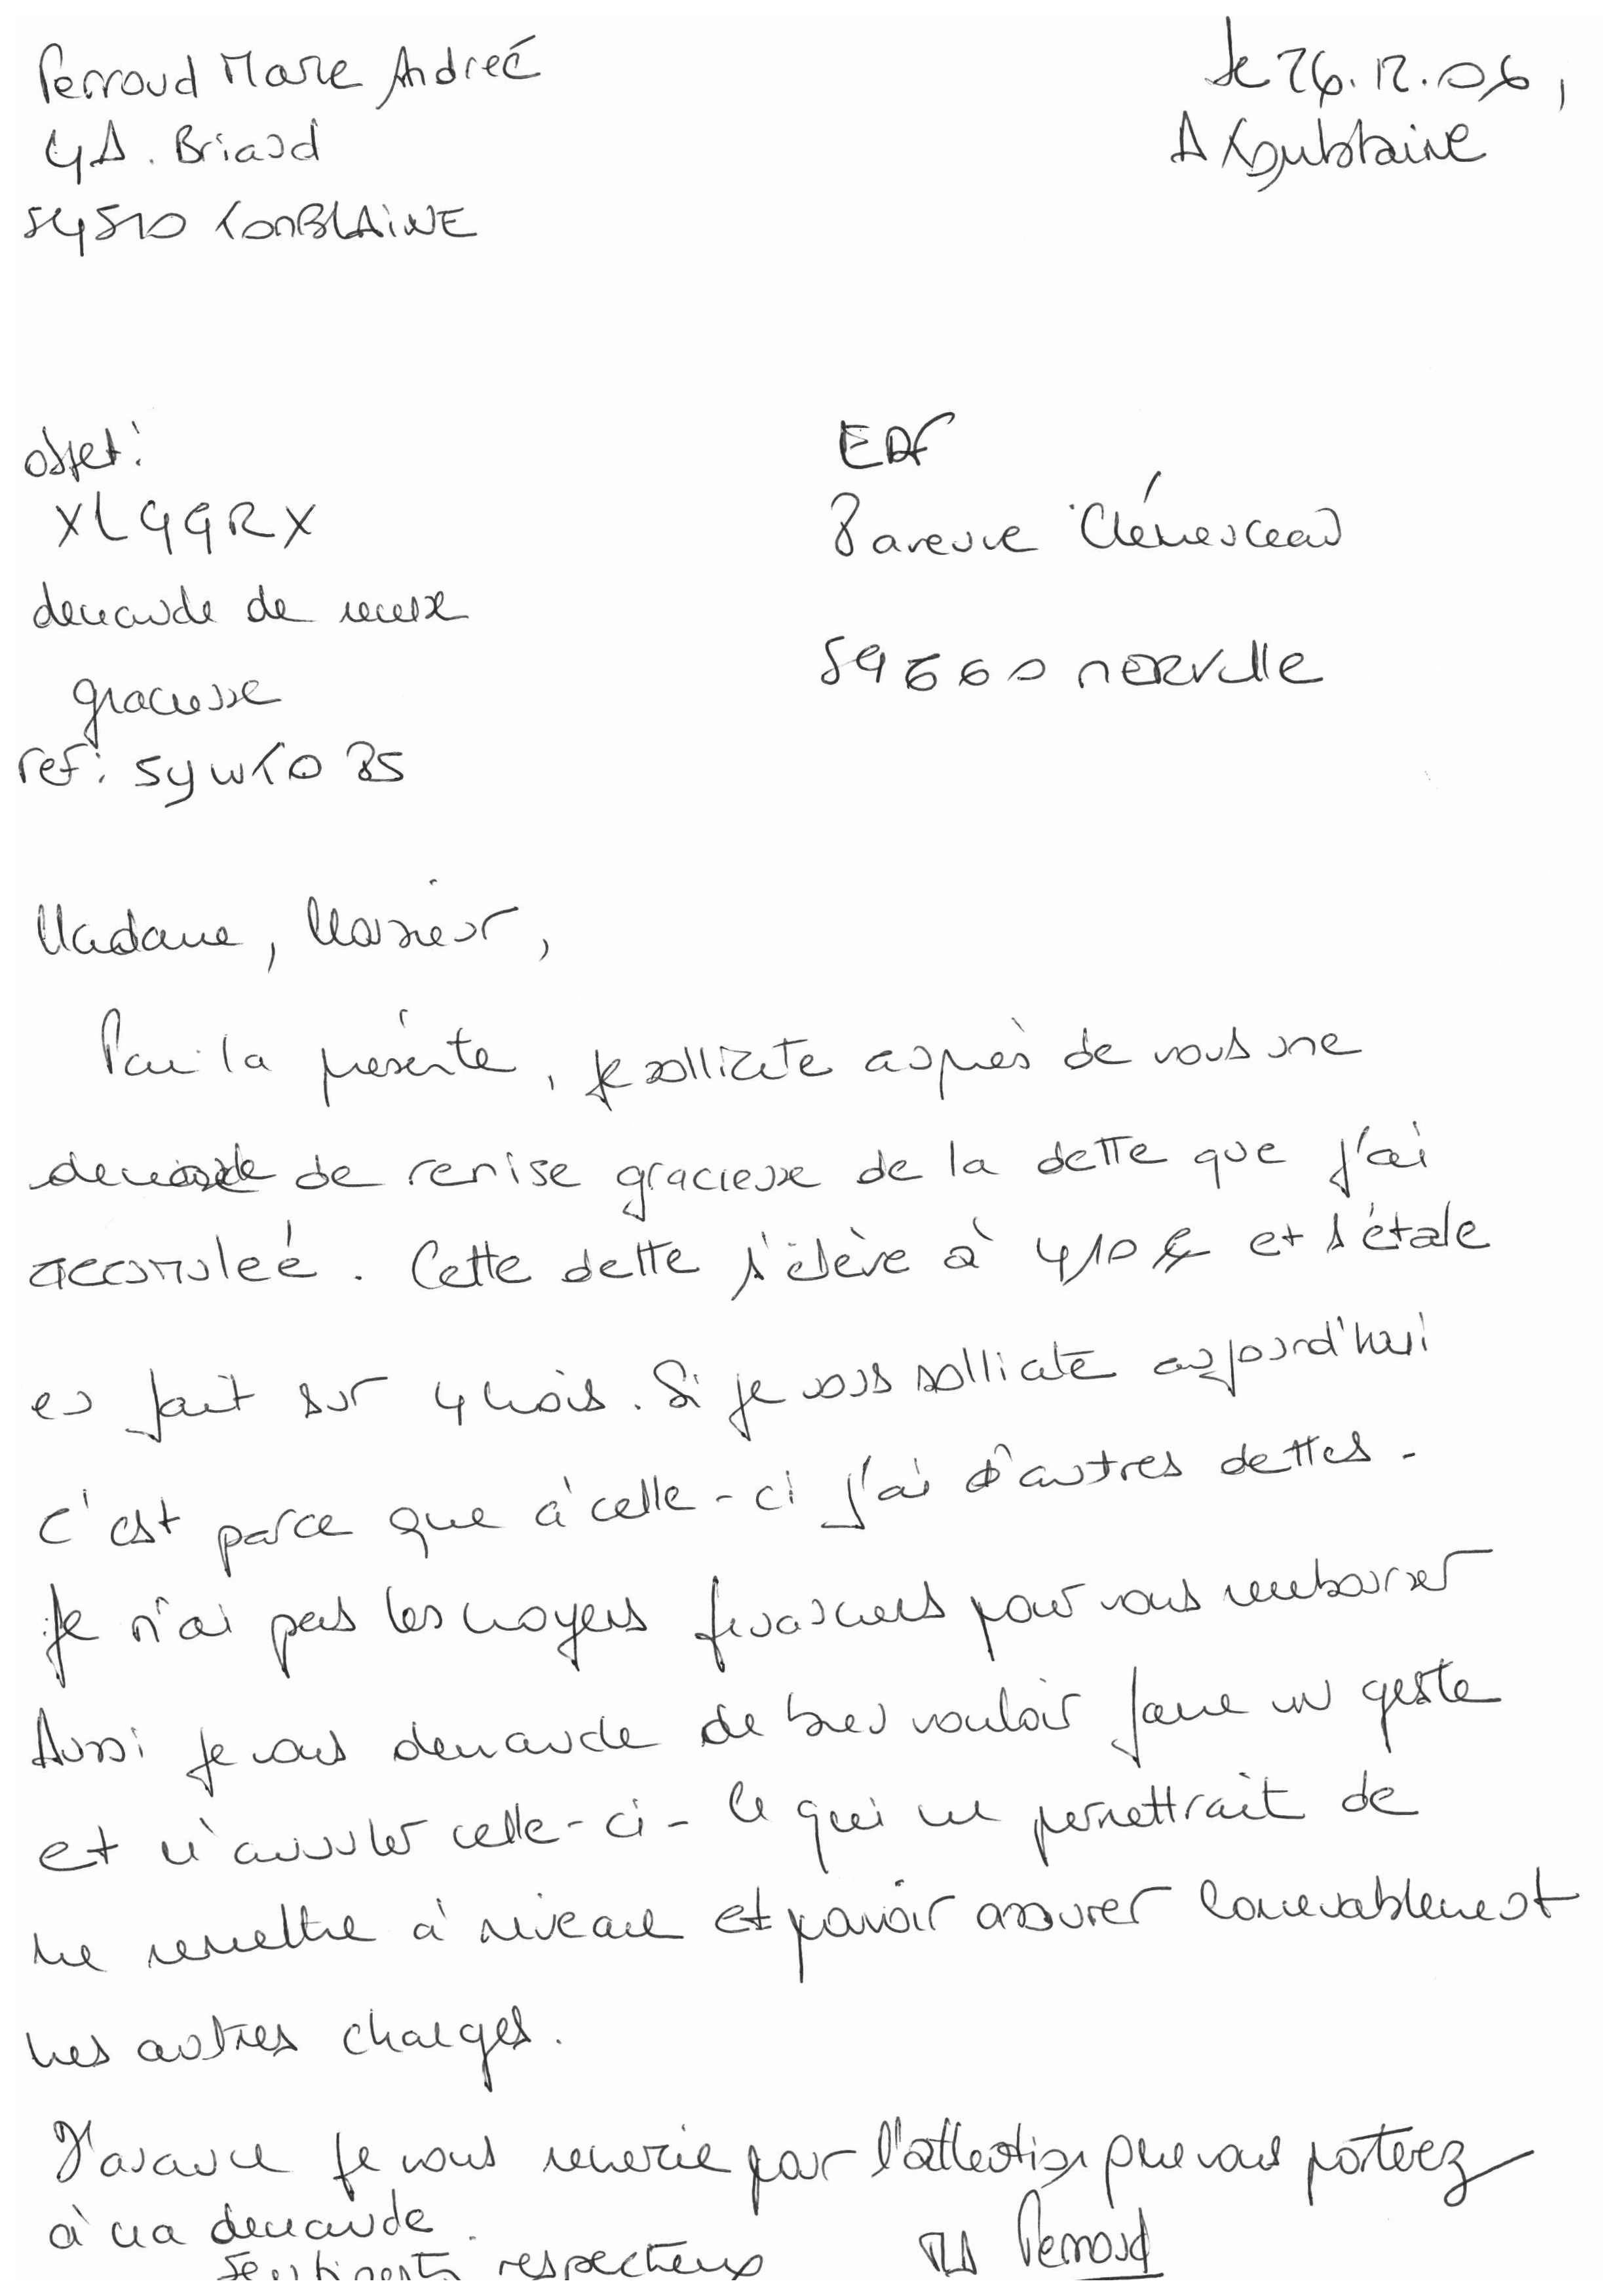 Perroud Marie Andreé
4 A. Briand
54510 TOMBLAINE
le 26.12.06,
A
objet:
XLGGRX
demande de remise
gracieuse
ref: SYWTO85
EDF
8 avenue Clémenceau
59660 MERVILLE
Madame, Monsieur,
Par la présente, je sollicite auprès de vous une
demande de remise gracieuse de la dette que j'ai
accumuleé. Cette dette s'élève à 410 € et s'étale
en fait sur 4 mois. Si je vous sollicite aujourd'hui
c'est parce que à celle-ci j'ai d'autres dettes.
Je n'ai pas les moyens financiers pour vous rembourser
Aussi je vous demande de bien vouloir faire un geste
et m'annuler celle-ci - Ce qui me permettrait de
me remettre à niveau et pouvoir assurer convenablement
mes autres charges.
D'avance je vous remercie par l'attention que vous porterez
à ma demande.
Sentiments respectueux
MA Perroud